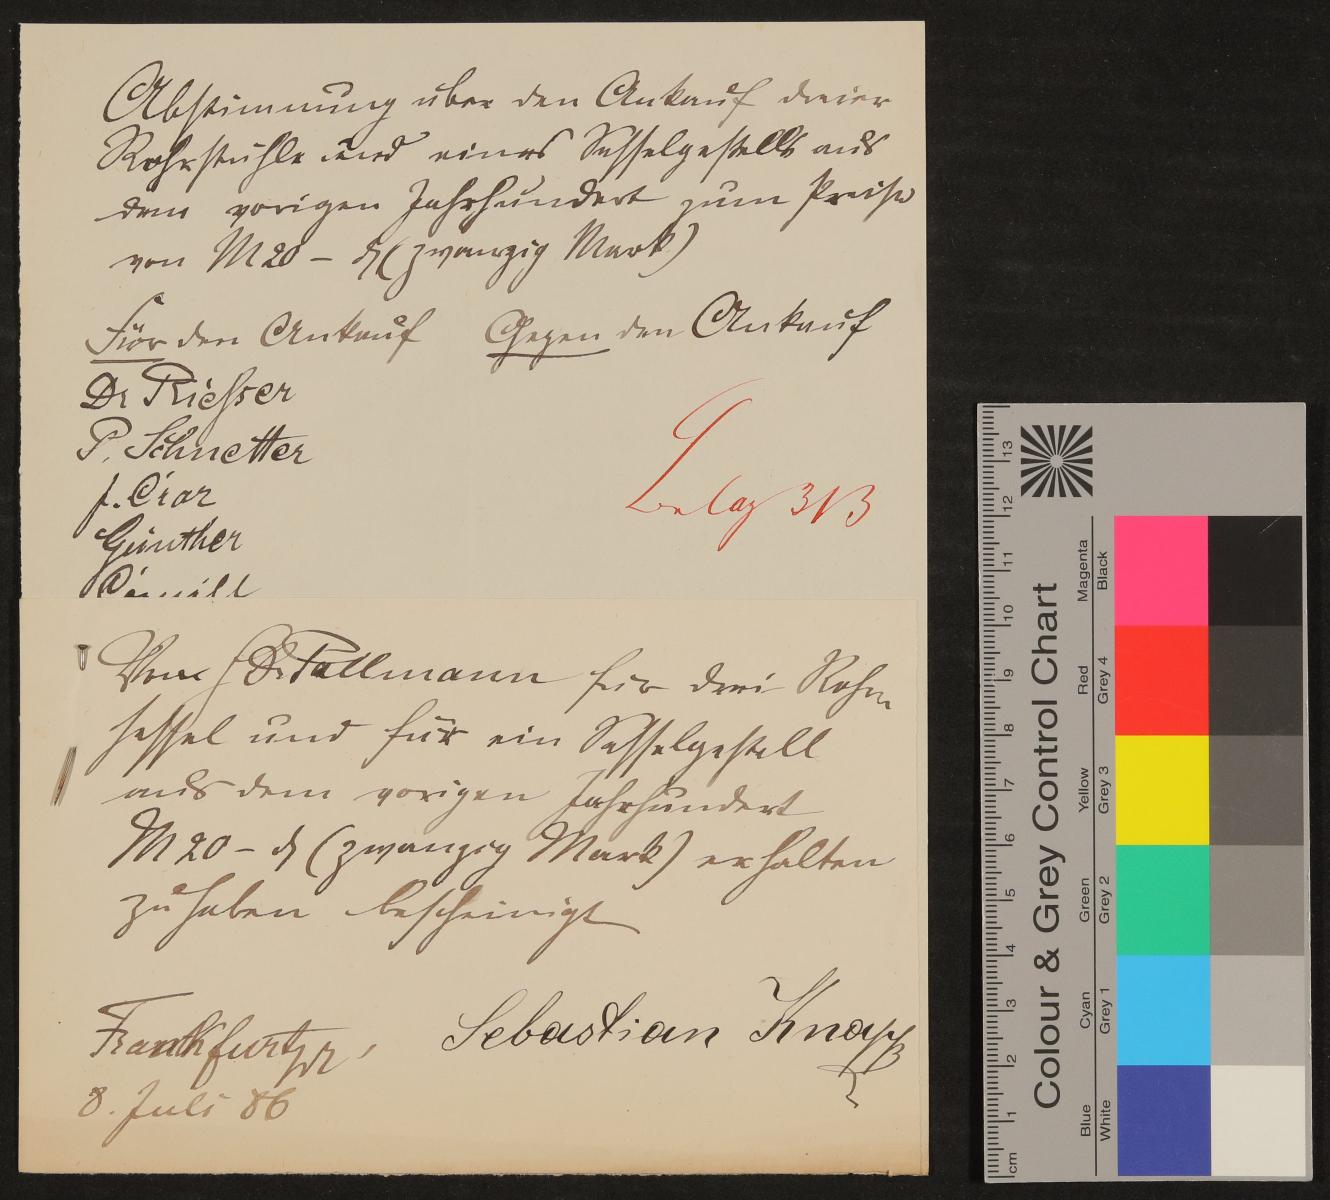 Abstimmung über den Ankauf dreier
Rohrstühle und eines Sesselgestells aus
dem vorigen Jahrhundert zum Preise
von M 20 – ₰ (zwanzig Mark)
Für den Ankauf Gegen den Ankauf
Dr Riesser
P. Schnetter
Günther
Beleg 313
Von Dr Pallmann für drei Rohr
sessel und für ein Sesselgestell
aus dem vorigen Jahrhundert
M 20 – ₰ (zwanzig Mark) erhalten
zu haben bescheinigt
Frankfurt
8. Juli 86
Sebastian Knapp
Colour & Grey Control Chart
Blue Cyan Green Yellow Red Magenta
White Grey 1 Grey 2 Grey 3 Grey 4 Black
cm 1 2 3 4 5 6 7 8 9 10 11 12 13